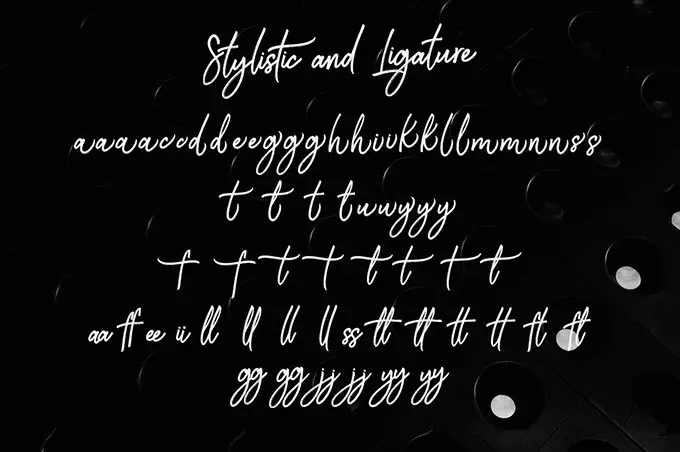 Stylistic and Ligature
aaaaccddeegggghhiikkllmmnnss
ttttuuyyy
fftttttt
aa ff ee ii ll ll ll ll ss tt tt tt tt ft ft
gg gg jj jj yy yy